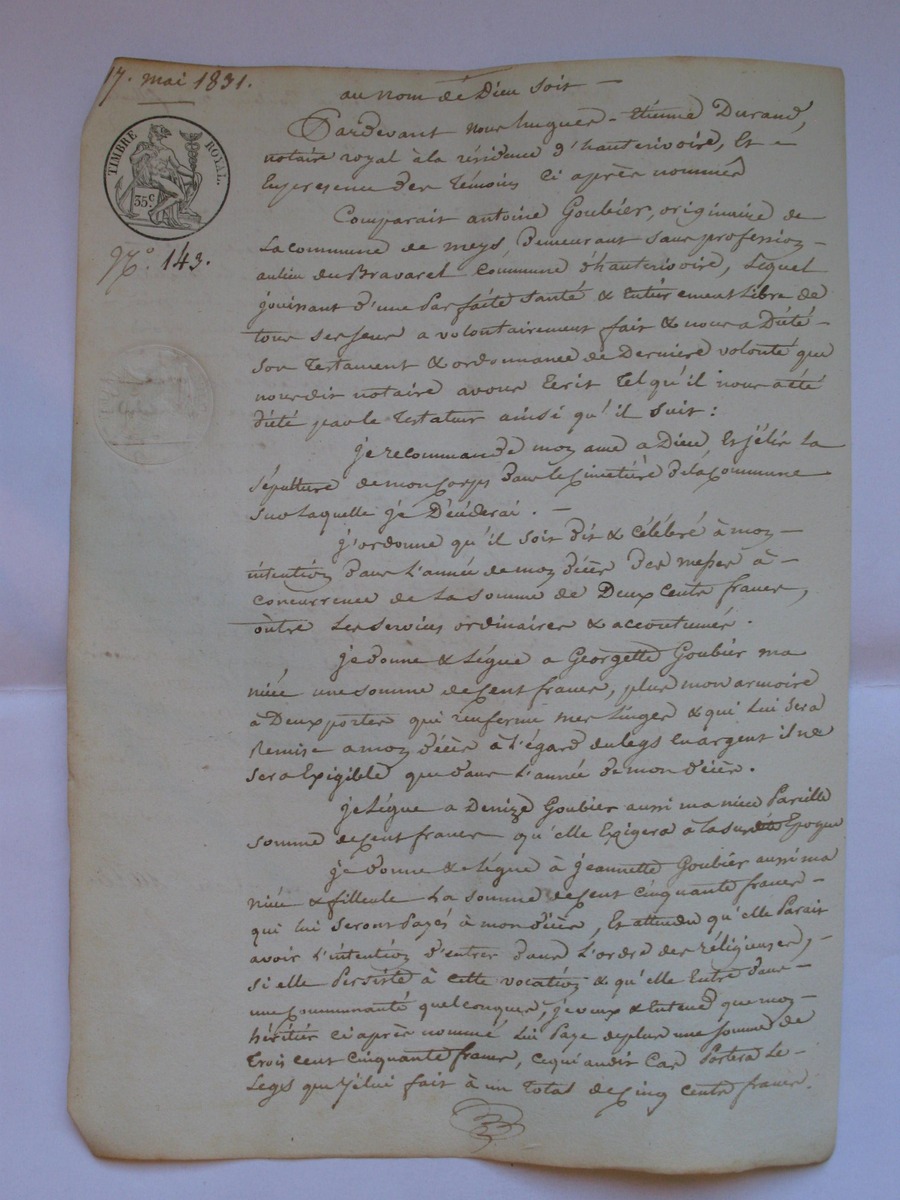 17. mai 1831.
TIMBRE ROYAL.
35 c
N.o 143.
au nom de Dieu soit —
Pardevant nous hugues-Etienne Durand,
notaire royal à la résidence d'hauterivoire, Et =
En presence des témoins ci après nommés
Comparait antoine Goubier, originaire de
La commune de meys, Demeurant sans profession —
au lieu du Bravaret Commune d'hauterivoire, Lequel
jouissant d'une Parfaite santé & Entierement Libre de
tous ses sens a volontairement fait & nous a Dicté —
son Testament & ordonnance de Derniere volonté que
nousdit notaire avons Ecrit Tel qu'il nous a été
dicté par le Testateur ainsi qu'il suit :
je recommande mon ame a Dieu, Et j'élis la
sépulture de mon Corps Dans le Cimetière de la Commune
sur Laquelle je Décéderai . —
j'ordonne qu'il soit dit & Célébré à mon —
intention dans l'année de mon décès Des messes à —
concurrence de La somme de Deux Cents francs,
outre Les services ordinaires & accoutumés .
je donne & Légue a Georgette Goubier ma
niéce une somme de Cent francs, plus mon armoire
à Deux portes qui renferme mes Linges & qui Lui sera
Remise a mon décès à l'égard du Legs En argent il ne
sera Exigible que dans l'année de mon décès .
je Légue a Denize Goubier aussi ma niéce Pareille
somme de Cent francs qu'elle Exigera à la susdite Epoque
je donne & Légue à jeannette Goubier aussi ma
niéce & filleule La somme de Cent cinquante francs —
qui lui seront Payés à mon décès, Et attendu qu'elle Parait
avoir l'intention d'entrer dans L'ordre des réligieuses, —
si elle Persiste à cette vocation & qu'elle Entre dans —
une Communauté quelconque, je veux & Entend que mon —
héritier ci après nommé Lui Paye de plus une somme de
Trois cent cinquante francs, ce qui audit Cas Portera Le —
Legs que j'élui fait à un Total de Cinq cents francs .